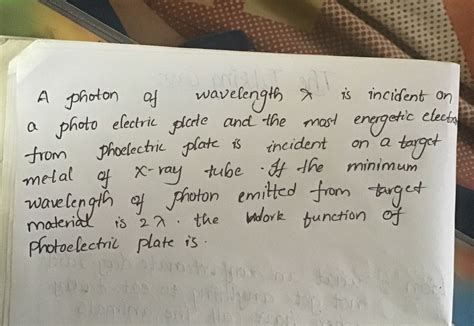 A photon of wavelength λ is incident on
a photo electric plate and the most energetic electron
from phoelectric plate is incident on a target
metal of X-ray tube. If the minimum
wavelength of photon emitted from target
material is 2λ. the work function of
Photoelectric plate is.